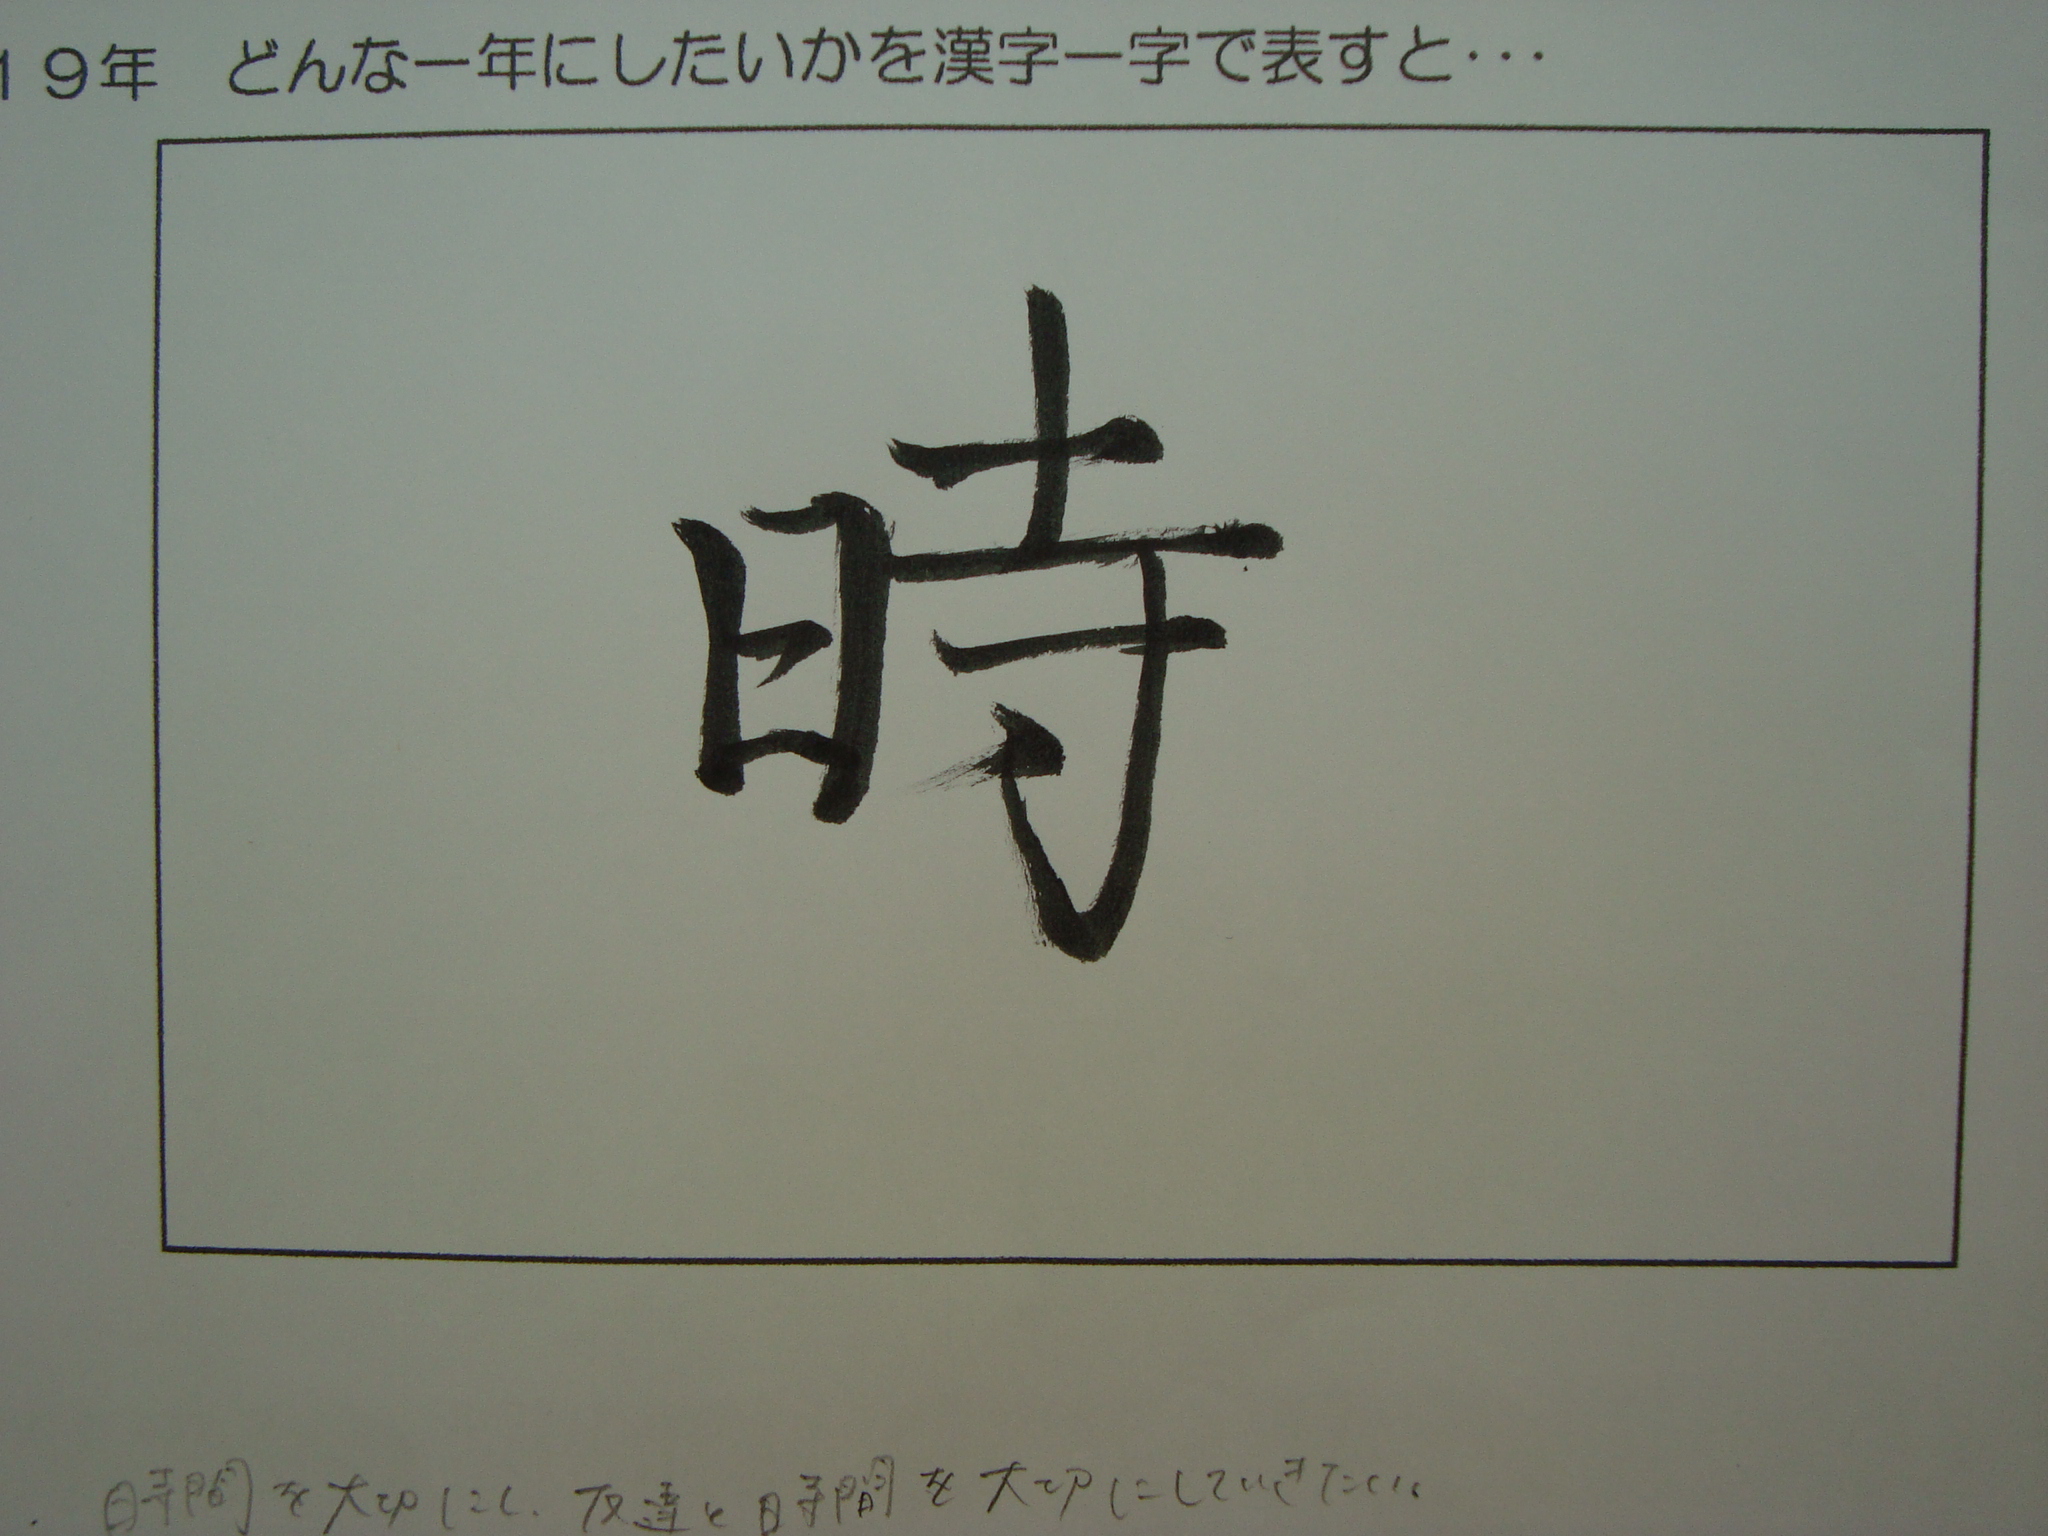 19年 どんな一年にしたいかを漢字一字で表すと・・・
時
時間を大切にし、友達と時間を大切にしていきたい。